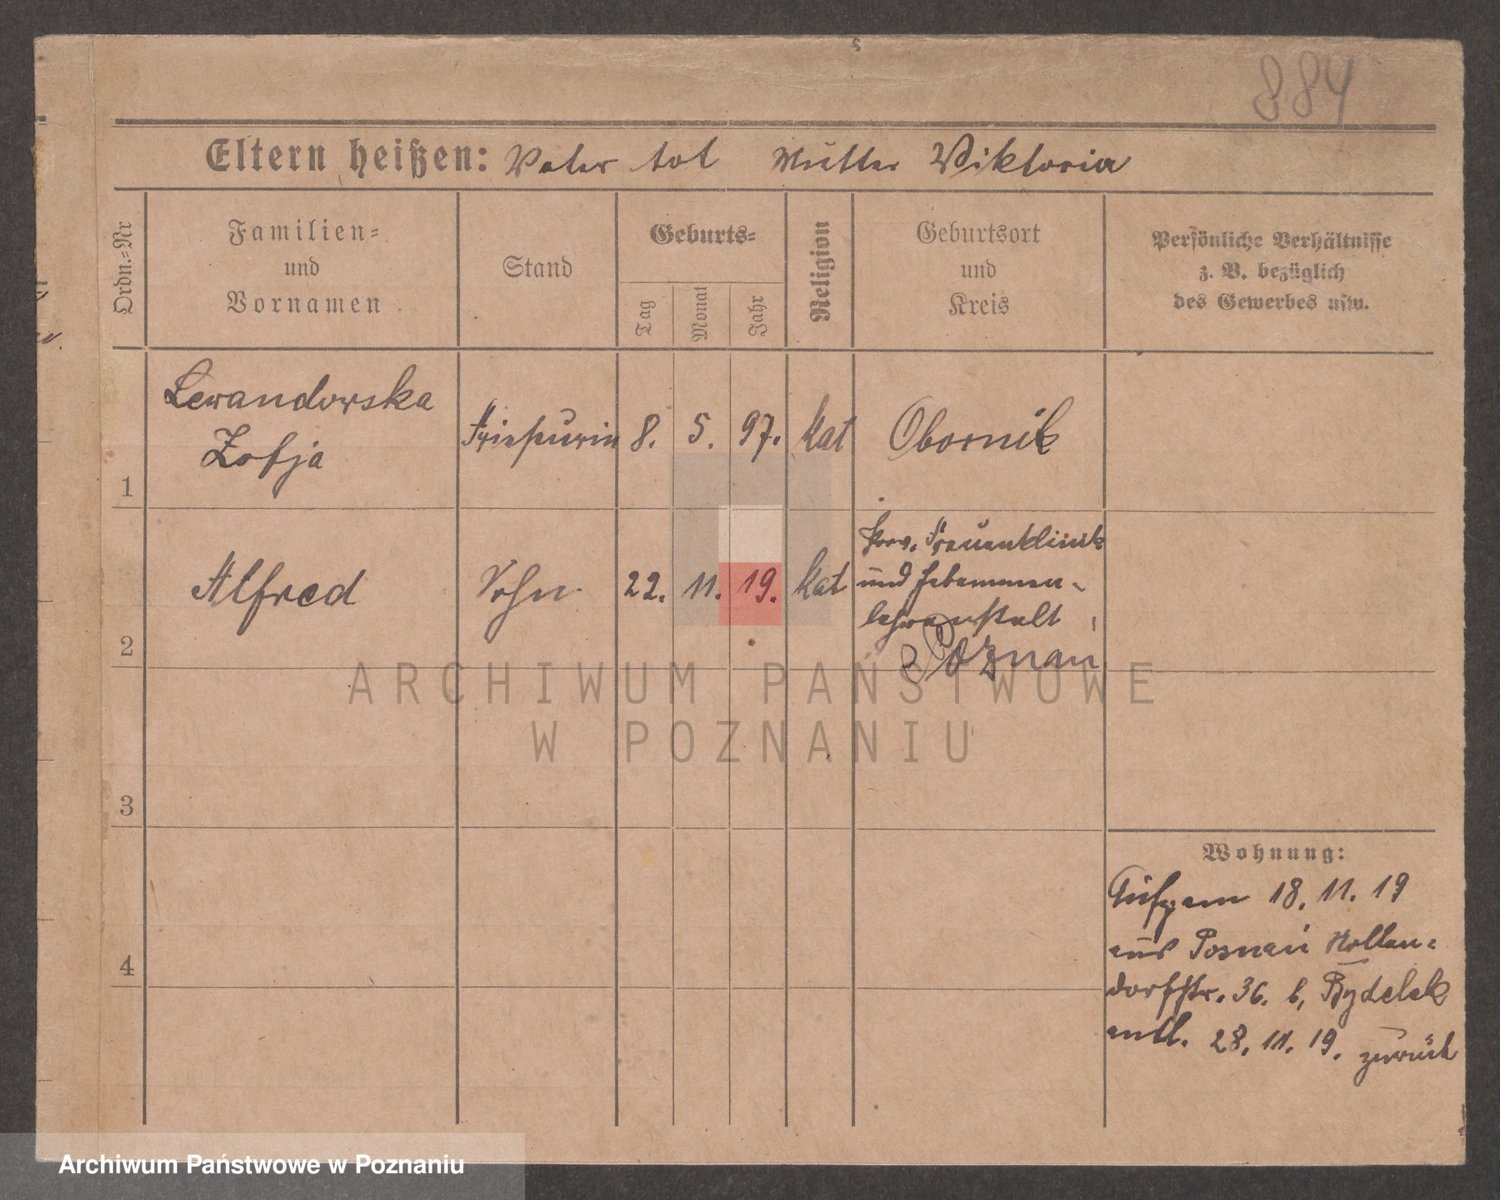 884
Eltern heißen: Vater tot Mutter Viktoria
Ordn.-Nr
Familien-
und
Vornamen
Stand
Geburts-
Tag
Monat
Jahr
Religion
Geburtsort
und
Kreis
Persönliche Verhältnisse
z. B. bezüglich
des Gewerbes usw.
1
Lewandowska
Zofja
8.
5.
97.
kat
Obornik
2
Alfred
Sohn
22.
11.
19.
kat
Prov. Frauenklinik
und Hebammen-
lehranstalt
Poznań
3
4
Wohnung:
Aufgen 18. 11. 19
aus Posnań Hollen-
dorfstr. 36. b, Rydelek
entl. 28. 11. 19. zurück
ARCHIWUM PAŃSTWOWE
W POZNANIU
Archiwum Państwowe w Poznaniu